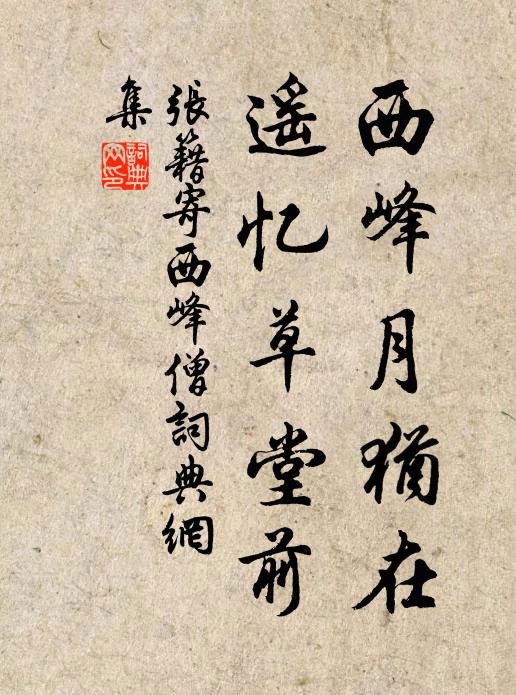 西峰月犹在
遥忆草堂前
張籍寄西峰僧詞典網
集
詞典
网印